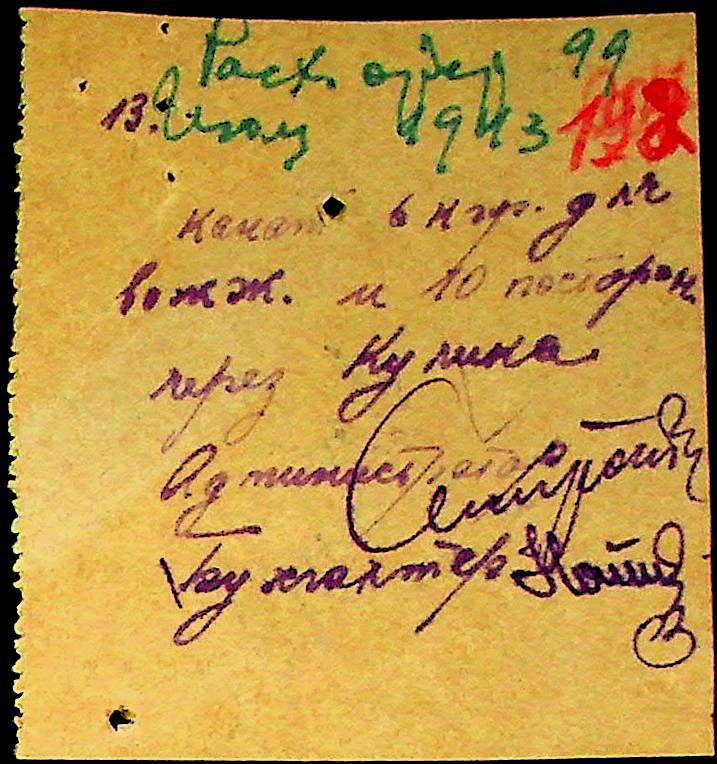 Расх. ордер 99
13. Июля 1943 192
канат 6 кгр. для
вожж. и 10 посторон.
через Кулика
Администратор
Бухгалтер